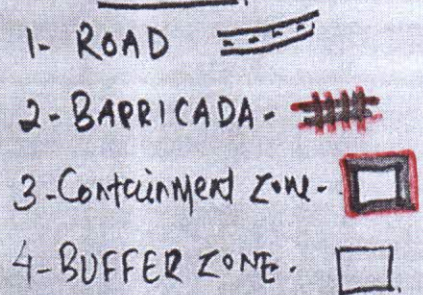 1- ROAD
2- BARRICADA-
3-Containment Zone-
4-BUFFER ZONE.